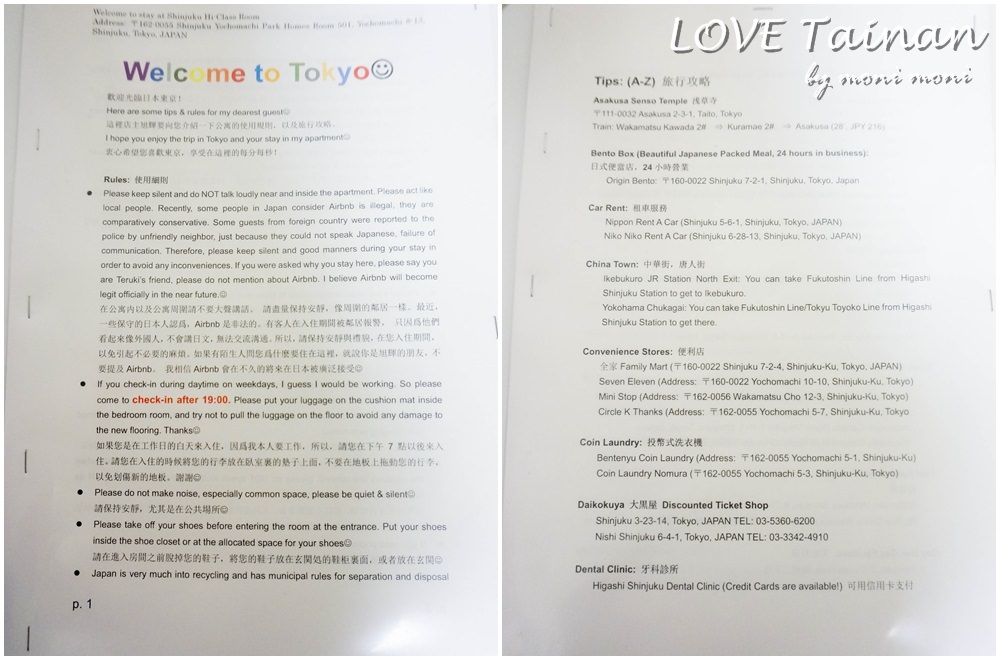 Welcome to stay at Shinjuku Hi-Class Room
Address: 〒162-0055 Shinjuku Yochomachi Park Homes Room 501, Yochomachi 8-13,
Shinjuku, Tokyo, JAPAN
Welcome to Tokyo☺
歡迎光臨日本東京!
Here are some tips & rules for my dearest guest☺
這裡店主旭輝要向您介紹一下公寓的使用規則,以及旅行攻略。
I hope you enjoy the trip in Tokyo and your stay in my apartment☺
衷心希望您喜歡東京,享受在這裡的每分每秒!
Rules: 使用細則
● Please keep silent and do NOT talk loudly near and inside the apartment. Please act like
local people. Recently, some people in Japan consider Airbnb is illegal, they are
comparatively conservative. Some guests from foreign country were reported to the
police by unfriendly neighbor, just because they could not speak Japanese, failure of
communication. Therefore, please keep silent and good manners during your stay in
order to avoid any inconveniences. If you were asked why you stay here, please say you
are Teruki's friend, please do not mention about Airbnb. I believe Airbnb will become
legit officially in the near future.☺
在公寓內以及公寓周圍請不要大聲講話。 請盡量保持安靜,像周圍的鄰居一樣。最近,
一些保守的日本人認爲,Airbnb 是非法的。有客人在入住期間被鄰居報警, 只因爲他們
看起來像外國人,不會講日文,無法交流溝通。所以,請保持安靜與禮貌,在您入住期間,
以免引起不必要的麻煩。如果有陌生人問您爲什麼要住在這裡,就說你是旭輝的朋友,不
要提及 Airbnb。 我相信 Airbnb 會在不久的將來在日本被廣泛接受☺
● If you check-in during daytime on weekdays, I guess I would be working. So please
come to check-in after 19:00. Please put your luggage on the cushion mat inside
the bedroom room, and try not to pull the luggage on the floor to avoid any damage to
the new flooring. Thanks☺
如果您是在工作日的白天來入住,因爲我本人要工作,所以,請您在下午 7 點以後來入
住。請您在入住的時候將您的行李放在臥室裏的墊子上面,不要在地板上拖動您的行李。
以免划傷新的地板。謝謝☺
● Please do not make noise, especially common space, please be quiet & silent☺
請保持安靜,尤其是在公共場所☺
● Please take off your shoes before entering the room at the entrance. Put your shoes
inside the shoe closet or at the allocated space for your shoes☺
請在進入房間之前脫掉您的鞋子,將您的鞋子放在玄関処的鞋柜裏面,或者放在玄関☺
● Japan is very much into recycling and has municipal rules for separation and disposal
p. 1
LOVE Tainan
by moni moni
Tips: (A-Z) 旅行攻略
Asakusa Senso Temple 浅草寺
〒111-0032 Asakusa 2-3-1, Taito, Tokyo
Train: Wakamatsu Kawada 2# ⇒ Kuramae 2# ⇒ Asakusa (28', JPY 216)
Bento Box (Beautiful Japanese Packed Meal, 24 hours in business):
日式便當店,24 小時營業
Origin Bento: 〒160-0022 Shinjuku 7-2-1, Shinjuku, Tokyo, Japan
Car Rent: 租車服務
Nippon Rent A Car (Shinjuku 5-6-1, Shinjuku, Tokyo, JAPAN)
Niko Niko Rent A Car (Shinjuku 6-28-13, Shinjuku, Tokyo, JAPAN)
China Town: 中華街,唐人街
Ikebukuro JR Station North Exit: You can take Fukutoshin Line from Higashi
Shinjuku Station to get to Ikebukuro.
Yokohama Chukagai: You can take Fukutoshin Line/Tokyu Toyoko Line from Higashi
Shinjuku Station to get there.
Convenience Stores: 便利店
全家 Family Mart (〒160-0022 Shinjuku 7-2-4, Shinjuku-Ku, Tokyo, JAPAN)
Seven Eleven (Address: 〒160-0022 Yochomachi 10-10, Shinjuku-Ku, Tokyo)
Mini Stop (Address: 〒162-0056 Wakamatsu Cho 12-3, Shinjuku-Ku, Tokyo)
Circle K Thanks (Address: 〒162-0055 Yochomachi 5-7, Shinjuku-Ku, Tokyo
Coin Laundry: 投幣式洗衣機
Bentenyu Coin Laundry (Address: 〒162-0055 Yochomachi 5-1, Shinjuku-Ku)
Coin Laundry Nomura (〒162-0055 Yochomachi 5-3, Shinjuku-Ku, Tokyo)
Daikokuya 大黒屋 Discounted Ticket Shop
Shinjuku 3-23-14, Tokyo, JAPAN TEL: 03-5360-6200
Nishi Shinjuku 6-4-1, Tokyo, JAPAN TEL: 03-3342-4910
Dental Clinic: 牙科診所
Higashi Shinjuku Dental Clinic (Credit Cards are available!) 可用信用卡支付